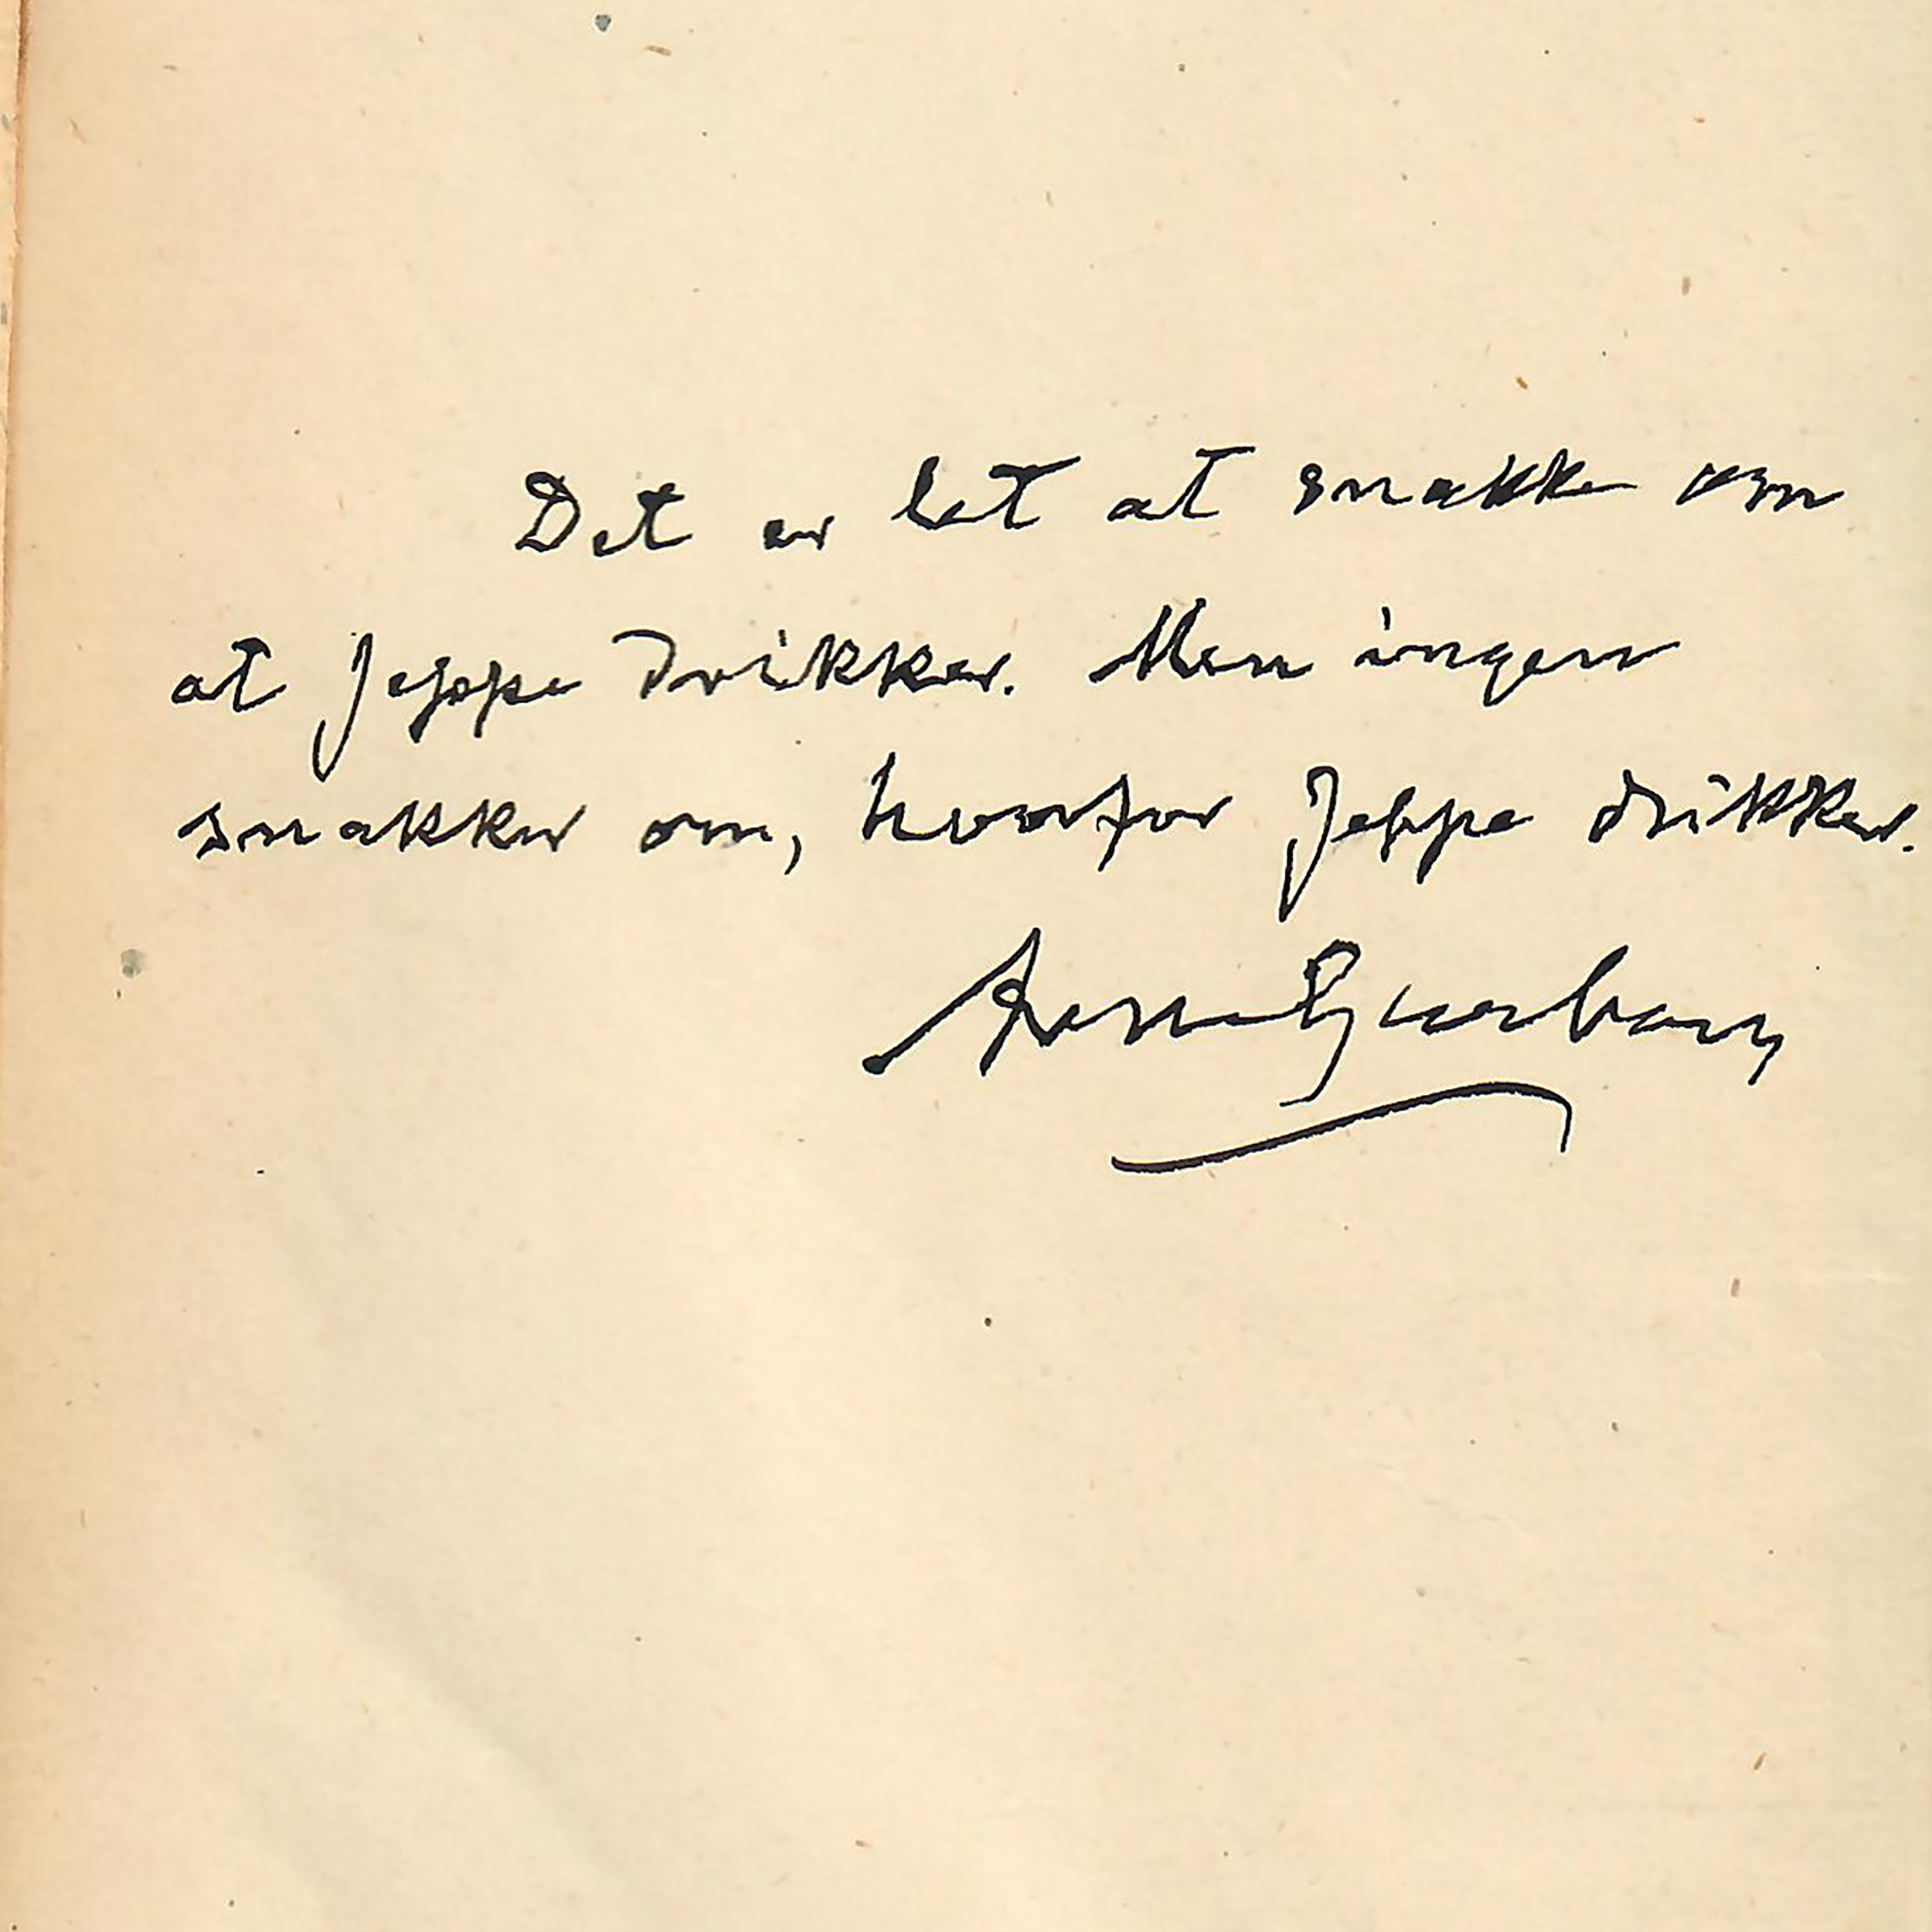 Det er let at snakke om
at Jeppe drikker. Men ingen
snakker om, hvorfor Jeppe drikker.
Arne Garborg